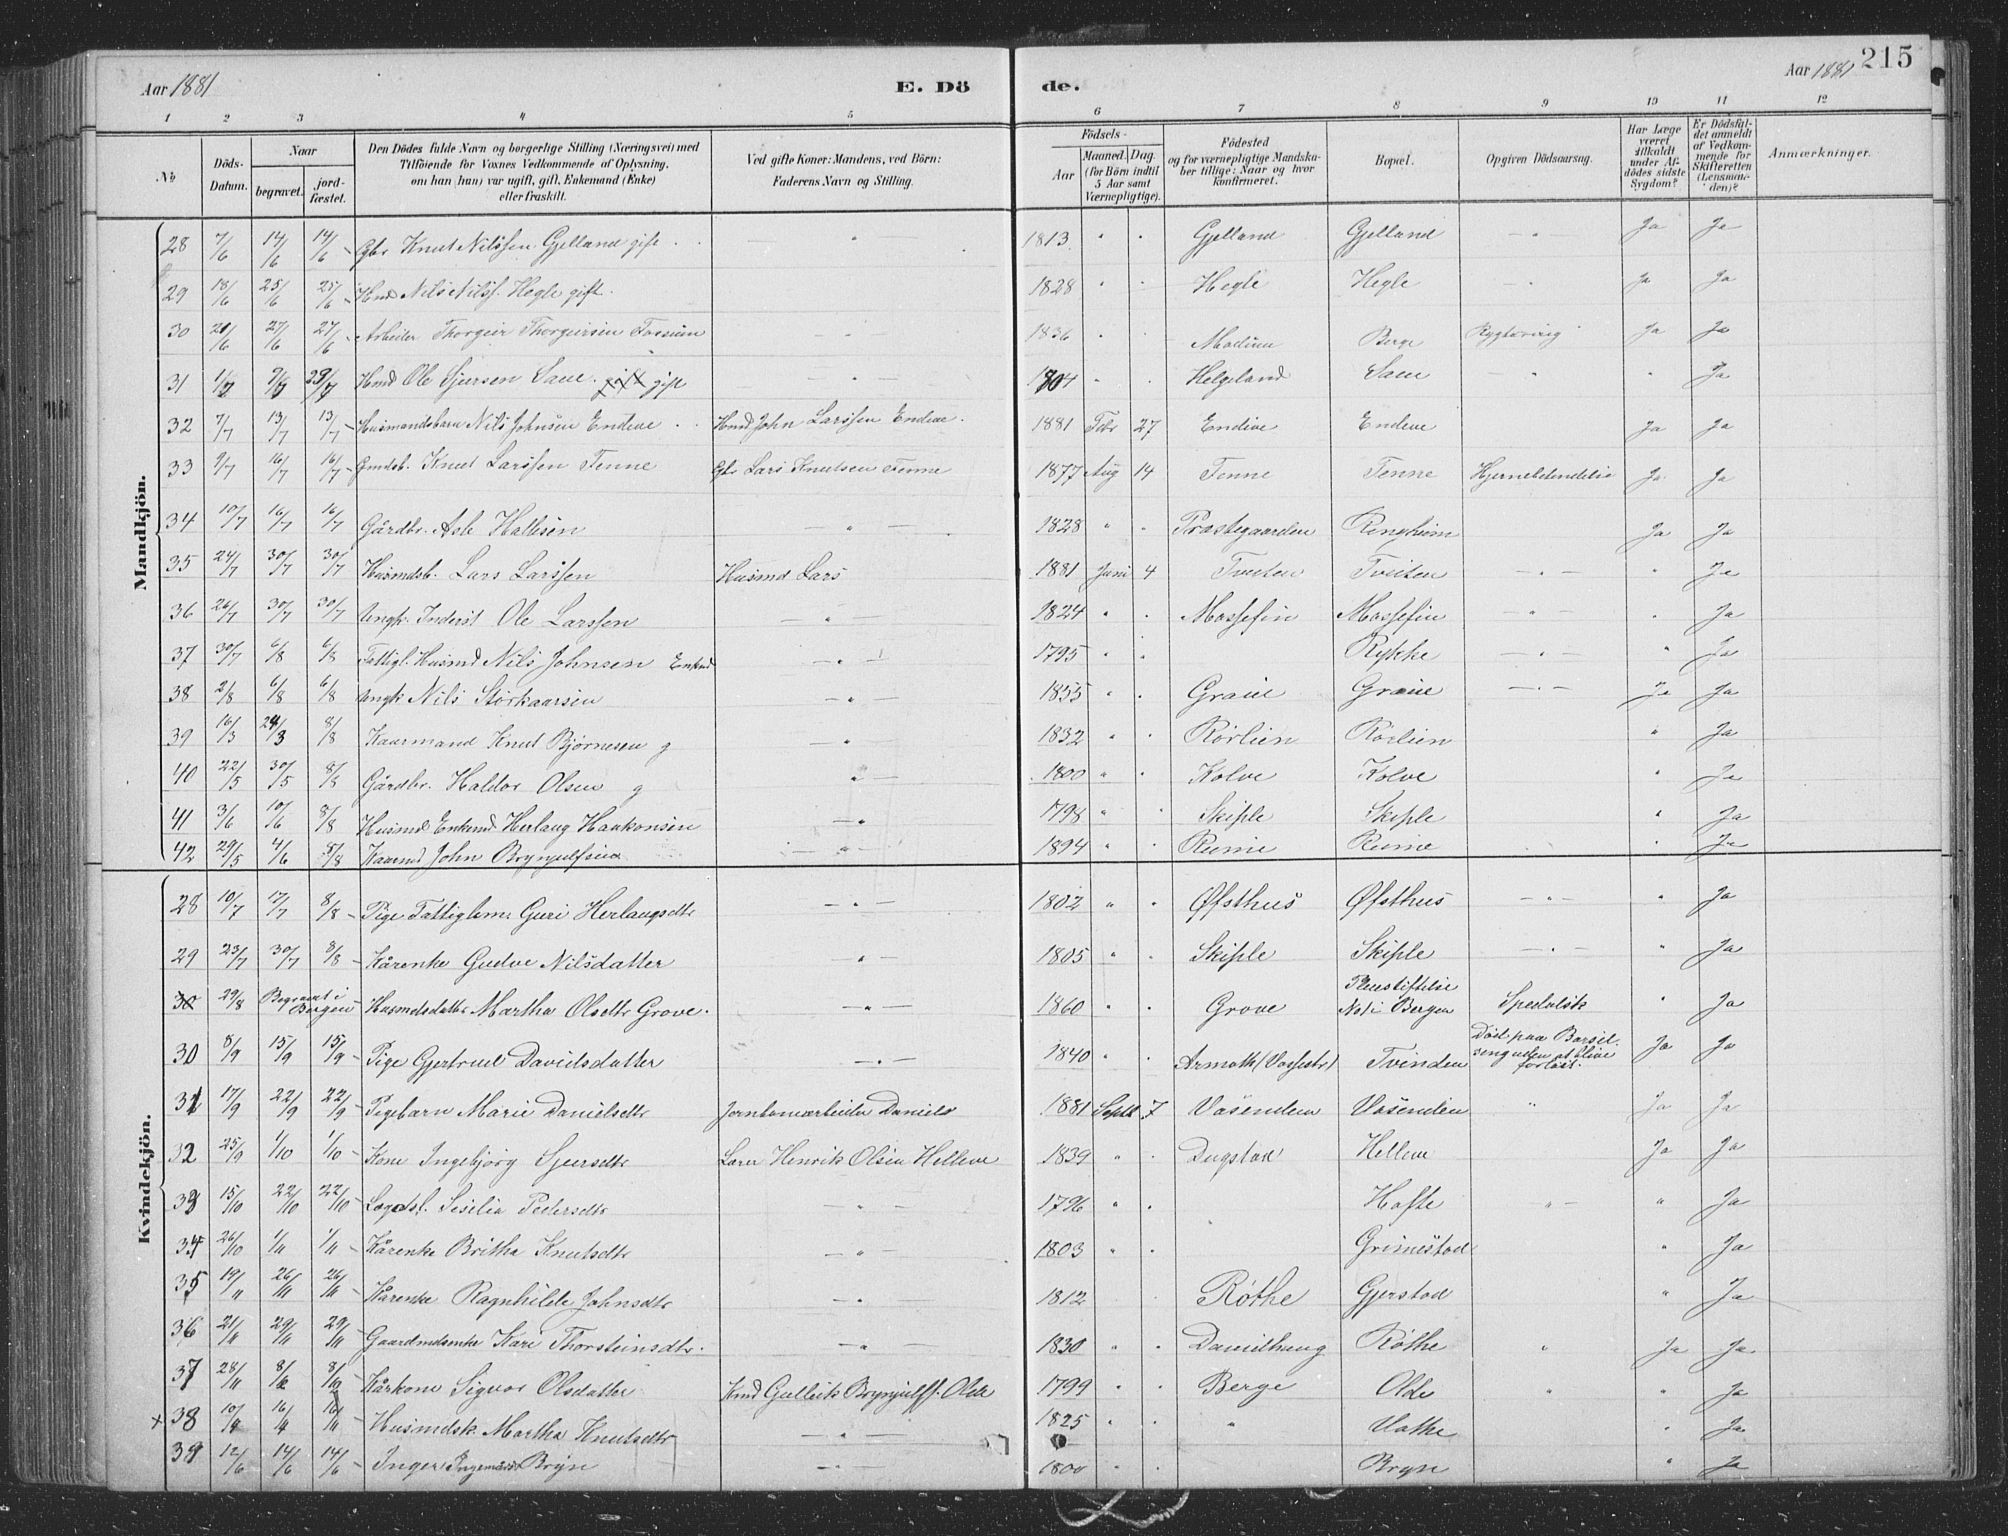 Aar 1881
E. Dö
de.
Aar 1881
215
1 2 3 4 5 6 7 8 9 10 11 12
No
Döds-Datum.
Naar
begravet.
jord-fæstet.
Den Dödes fulde Navn og borgerlige Stilling (Næringsvei) med
Tilföiende for Voxnes Vedkommende af Oplysning,
om han (hun) var ugift, gift, Enkemand (Enke)
eller fraskilt.
Ved gifte Koner: Mandens, ved Börn:
Faderens Navn og Stilling.
Födsels-
Aar
Maaned. Dag.
(for Börn indtil
5 Aar samt
Værnepligtige).
Födested
og for værnepligtige Mandska-
ber tillige: Naar og hvor
konfirmeret.
Bopæl.
Opgiven Dödsaarsag.
Har Læge
været
tilkaldt
under Af-
dödes sidste
Sygdom?
Er Dödsfal-
det anmeldt
af Vedkom-
mende for
Skifteretten
(Lensman-
den)?
Anmærkninger.
Mandkjön.
28 7/6 14/6 14/6 Gbr Knut Nilssen Gjelland gift 1813 Gjelland Gjelland Ja Ja
29 18/6 25/6 25/6 Hmd Nils Nilss. Hegle gift. 1828 Hegle Hegle Ja Ja
30 21/6 27/6 27/6 Arbeider Thorgeir Thorgeirsen Fossum 1836 Modum Berge Ja Ja
31 1/7 9/7 29/7 Hmd Ole Sjursen Saue gift 1804 Helgeland Saue Ja
32 7/7 13/7 13/7 Husmandsbarn Nils Johnsen Endeve Hmd John Larssen Endeve 1881 Febr 27 Endeve Endeve Ja Ja
33 9/7 16/7 16/7 Gmdsb. Knut Larssen Tenne Gbr Lars Knutsen Tenne 1877 Aug 14 Tenne Tenne Hjernebetendelse Ja Ja
34 10/7 16/7 16/7 Gårdbr. Asle Hallsen 1828 Præstegaarden Ringheim Ja Ja
35 24/7 30/7 30/7 Husmdsb. Lars Larssen Husmd Lars 1881 Juni 4 Tveiten Tveiten Ja
36 26/7 30/7 30/7 Ungk. Inderst Ole Larssen 1824 Mossefin Mossefin Ja
37 30/7 6/8 6/8 Fattigl. Husmd Nils Johnsen Enkmd 1795 Rykke Ja
38 2/8 6/8 6/8 Ungk Nils Storkaarsen 1855 Graue Graue Ja Ja
39 16/3 24/3 8/8 Kaarmand Knut Bjørnesen g 1832 Rørlien Rørlien Ja
40 22/5 30/5 8/8 Gårdbr. Haldor Olsen g 1800 Kolve Kolve Ja
41 3/6 10/6 8/8 Husmd Enkemd Herlaug Haakonsen 1798 Skiple Skiple Ja
42 29/5 4/6 5/8 Kaarmd John Brynjulfsen 1894 Rime Rime Ja
Kvindekjön.
28 10/7 17/7 8/8 Pige Fattiglem Guri Herlaugsdtr 1802 Øfsthus Øfsthus Ja
29 23/7 30/7 8/8 Kårenke Gudve Nilsdatter 1805 Skiple Skiple Ja
30 29/8 Begravet i Bergen Husmdsdatter Martha Olsdtr Grove. 1860 Grove Pleiestiftelse No i Bergen Spedalsk Ja
30 8/9 15/9 15/9 Pige Gjertrud Davidsdatter 1840 Armoth (Vossestr) Tvinden Död paa Barselsengen uden at blive forløst. Ja Ja
31 17/9 22/9 22/9 Pigebarn Marie Danielsdtr Jernbanearbeider Daniels 1881 Septb 7 Vasenden Vasenden Ja Ja
32 25/9 1/10 1/10 Kone Ingebjørg Sjursdtr Lærer Henrik Olsen Helleve 1839 Dugstad Helleve Ja Ja
33 15/10 22/10 22/10 Lægdsl. Sesilia Pedersdtr 1796 Hafte Ja
34 26/10 1/11 1/11 Kårenke Britha Knutsdtr 1803 Grimestad Ja
35 19/11 26/11 26/11 Kårenke Ragnhilde Johnsdtr 1812 Røthe Gjerstad Ja
36 21/11 29/11 29/11 Gaardmdsenke Kari Thorsteinsdtr. 1830 Davidhaug Røthe Ja Ja
37 28/11 8/12 8/12 Kårkone Sigvor Olsdatter Kmd Gulleik Brynjulfs. Olde 1799 Berge Olde Ja
x 38 10/4 16/4 16/11 Husmdsk. Martha Knutsdtr 1825 Vathe Ja
39 12/6 14/6 14/6 Inger Bryn 1800 Bryn Ja